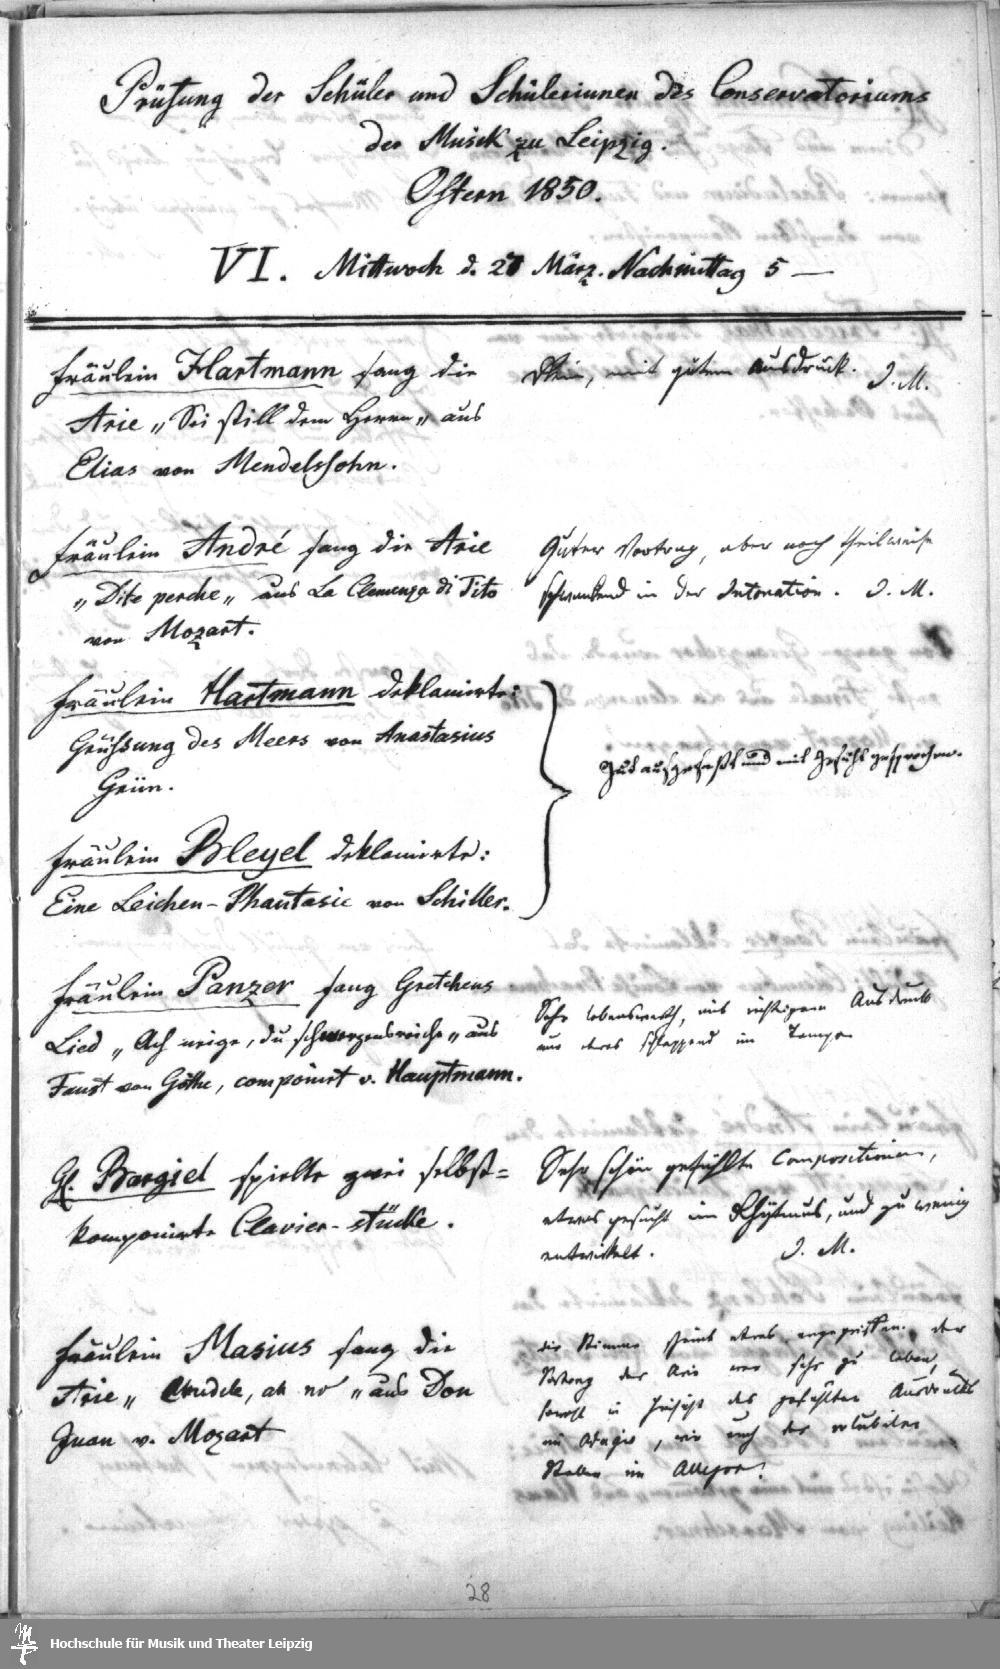 Prüfung der Schüler und Schülerinnen des Conservatoriums
der Musick zu Leipzig.
Ostern 1850.
VI. Mittwoch d. 27 März. Nachmittag 5 —
Fräulein Hartmann sang die
Arie „Sei still dem Herrn„ aus
Elias von Mendelssohn.
Rein, mit gutem Ausdruck. I. M.
Fräulein André sang die Arie
„Dite perche„ aus La Clemenza di Tito
von Mozart.
Guter Vortrag, aber noch theilweise
schwankend in der Intonation. I. M.
Fräulein Hartmann deklamirte:
Grüßung des Meers von Anastasius
Grün.
Fräulein Bleyel deklamirte:
Eine Leichen-Phantasie von Schiller.
Gut aufgefaßt und mit Gefühl gesprochen.
Fräulein Panzer sang Gretchens
Lied „Ach neige, du schmerzensreiche„ aus
Faust von Göthe, componirt v. Hauptmann.
Sehr lobenswerth, mit richtigem Ausdruck
nur etwas schleppend im Tempo
H. Bargiel spielte zwei selbst=
komponirte Clavier-stücke.
Sehr schön gefühlte Compositionen,
etwas gesucht im Rhÿtmus, und zu wenig
entwickelt. I. M.
Fräulein Masius sang die
Arie „Crudele, ah no„ aus Don
Juan v. Mozart
die Stimme scheint etwas angegriffen. der
Vortrag der Arie war sehr zu loben,
sowohl in Hinsicht des gefühlten Ausdrucks
im Adagio, wie auch der volubilen
Stellen im Allegro.
28
Hochschule für Musik und Theater Leipzig